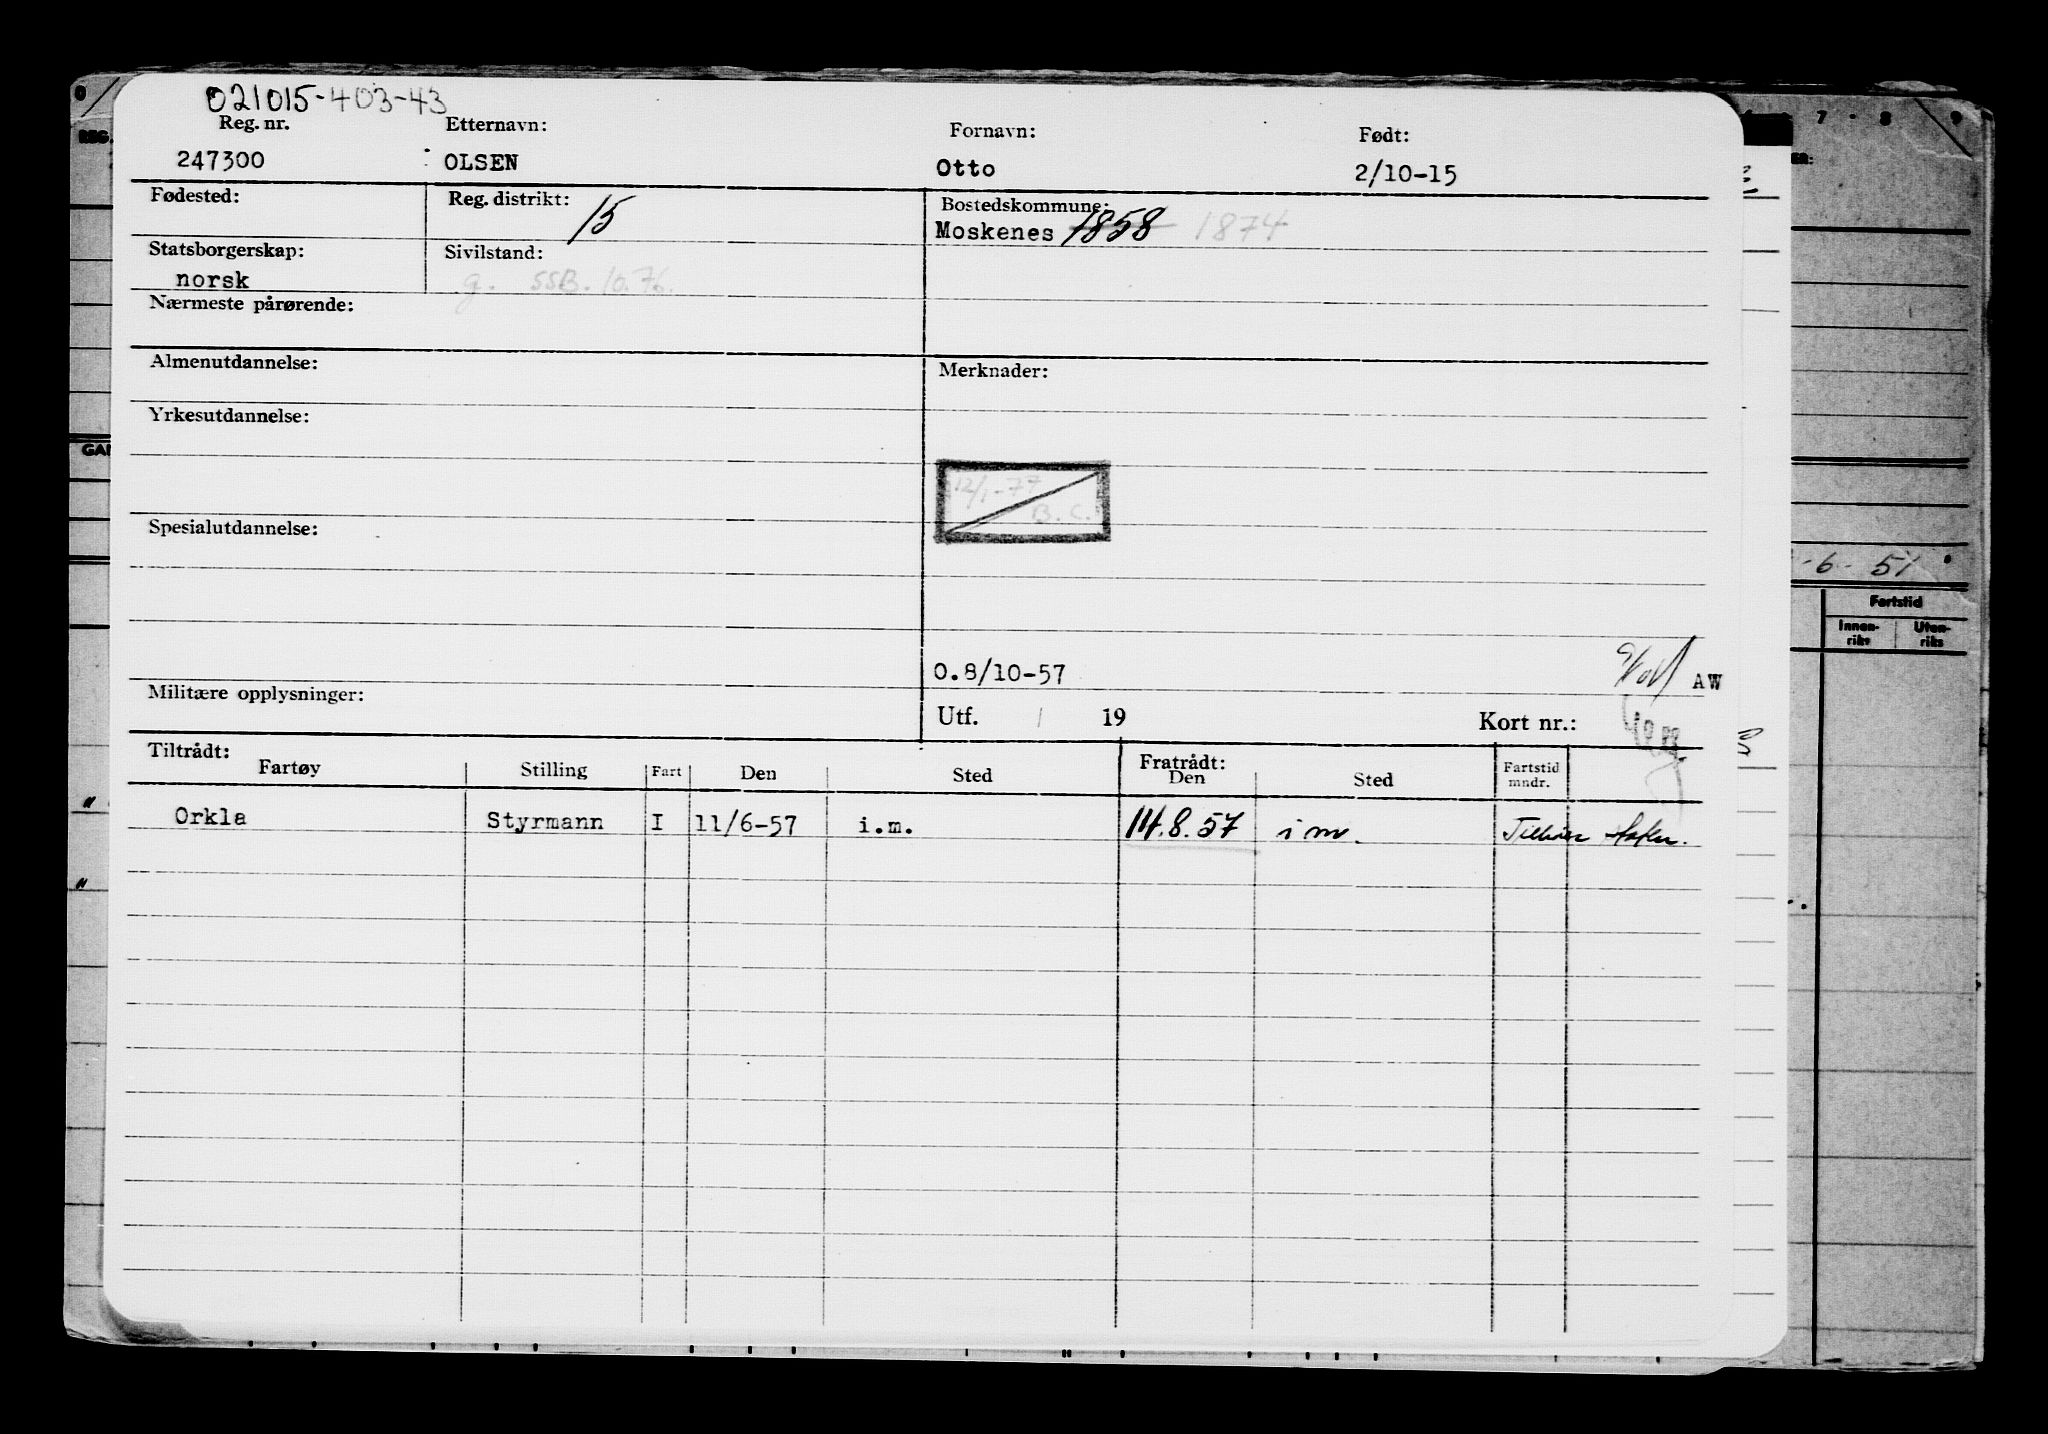 021015-403-43
Reg. nr. Etternavn: Fornavn: Født:
247300 OLSEN Otto 2/10-15
Fødested: Reg. distrikt: 15 Bostedskommune:
Moskenes 1858 1874
Statsborgerskap: Sivilstand:
norsk g. SSB. 10.76.
Nærmeste pårørende:
Almenutdannelse: Merknader:
Yrkesutdannelse:
12/1-77
B. C.
Spesialutdannelse:
-6-51
Fartstid
Innen-
riks
Uten-
riks
0.8/10-57 AW
Militære opplysninger:
Utf. 19 Kort nr.:
Tiltrådt: Fratrådt:
Fartøy Stilling Fart Den Sted Den Sted Fartstid
mndr.
Orkla Styrmann I 11/6-57 i.m. 14.8.57 i m.